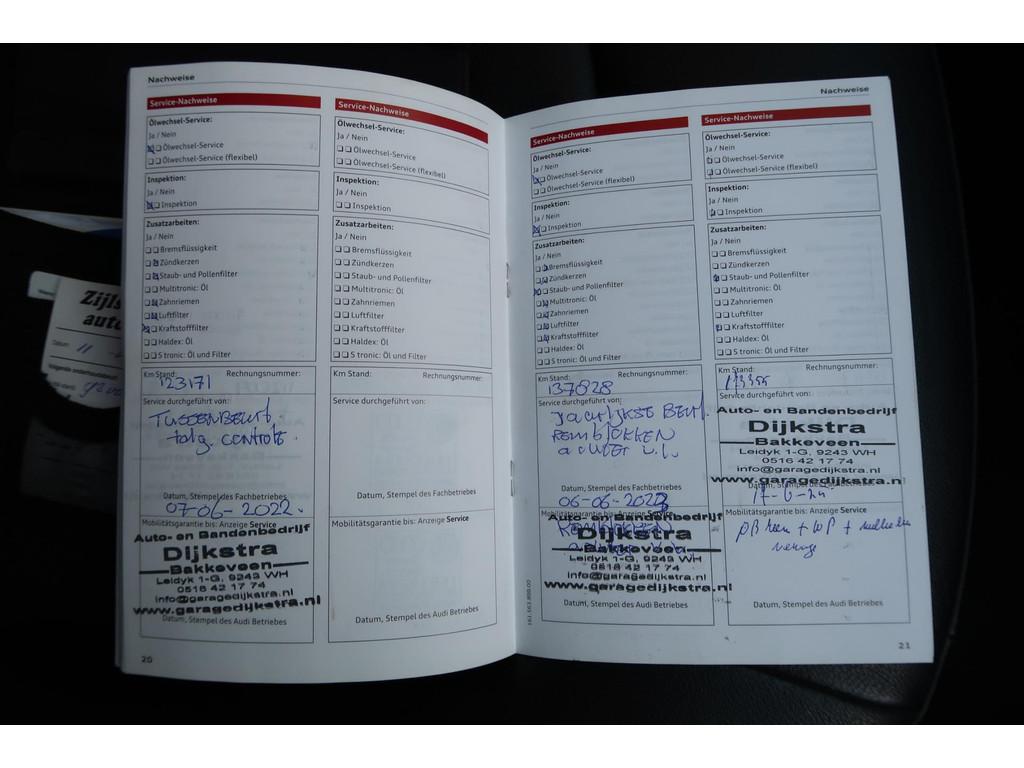 Nachweise
Service-Nachweise
Ölwechsel-Service:
Ja / Nein
Ölwechsel-Service
Ölwechsel-Service (flexibel)
Inspektion:
Ja / Nein
Inspektion
Zusatzarbeiten:
Ja / Nein
Bremsflüssigkeit
Zündkerzen
Staub- und Pollenfilter
Multitronic: Öl
Zahnriemen
Luftfilter
Kraftstofffilter
Haldex: Öl
S tronic: Öl und Filter
Km Stand: Rechnungsnummer:
123171
Service durchgeführt von:
TUSSENBEURT.
controle.
Datum, Stempel des Fachbetriebes
07-06-2022.
Mobilitätsgarantie bis: Anzeige Service
Auto- en Bandenbedrijf
Dijkstra
Bakkeveen
Leidyk 1-G, 9243 WH
0516 42 17 74
info@garagedijkstra.nl
www.garagedijkstra.nl
Datum, Stempel des Audi Betriebes
20
Service-Nachweise
Ölwechsel-Service:
Ja / Nein
Ölwechsel-Service
Ölwechsel-Service (flexibel)
Inspektion:
Ja / Nein
Inspektion
Zusatzarbeiten:
Ja / Nein
Bremsflüssigkeit
Zündkerzen
Staub- und Pollenfilter
Multitronic: Öl
Zahnriemen
Luftfilter
Kraftstofffilter
Haldex: Öl
S tronic: Öl und Filter
Km Stand: Rechnungsnummer:
Service durchgeführt von:
Datum, Stempel des Fachbetriebes
Mobilitätsgarantie bis: Anzeige Service
Datum, Stempel des Audi Betriebes
Nachweise
Service-Nachweise
Ölwechsel-Service:
Ja / Nein
Ölwechsel-Service
Ölwechsel-Service (flexibel)
Inspektion:
Ja / Nein
Inspektion
Zusatzarbeiten:
Ja / Nein
Bremsflüssigkeit
Zündkerzen
Staub- und Pollenfilter
Multitronic: Öl
Zahnriemen
Luftfilter
Kraftstofffilter
Haldex: Öl
S tronic: Öl und Filter
Km Stand: Rechnungsnummer:
137828
Service durchgeführt von:
JAARLIJKSE BEURT.
REMBLOKKEN
ACHTER
Datum, Stempel des Fachbetriebes
06-06-2023
Mobilitätsgarantie bis: Anzeige Service
Auto- en Bandenbedrijf
Dijkstra
Bakkeveen
Leidyk 1-G, 9243 WH
0516 42 17 74
info@garagedijkstra.nl
www.garagedijkstra.nl
Datum, Stempel des Audi Betriebes
Service-Nachweise
Ölwechsel-Service:
Ja / Nein
Ölwechsel-Service
Ölwechsel-Service (flexibel)
Inspektion:
Ja / Nein
Inspektion
Zusatzarbeiten:
Ja / Nein
Bremsflüssigkeit
Zündkerzen
Staub- und Pollenfilter
Multitronic: Öl
Zahnriemen
Luftfilter
Kraftstofffilter
Haldex: Öl
S tronic: Öl und Filter
Km Stand: Rechnungsnummer:
Service durchgeführt von:
Auto- en Bandenbedrijf
Dijkstra
Bakkeveen
Leidyk 1-G, 9243 WH
0516 42 17 74
info@garagedijkstra.nl
www.garagedijkstra.nl
Datum, Stempel des Fachbetriebes
17-6-24
Mobilitätsgarantie bis: Anzeige Service
Datum, Stempel des Audi Betriebes
21
Datum